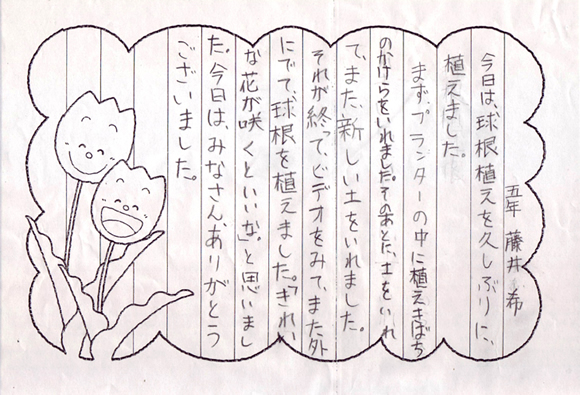 五年 藤井 希
今日は、球根植えを久しぶりに、
植えました。
まず、プランターの中に植えきばち
のかけらをいれました。そのあとに、土をいれ
て、また、新しい土をいれました。
それが終って、ビデオをみて、また外
にでて、球根を植えました。「きれい
な花が咲くといいな。」と思いまし
た。今日は、みなさん、ありがとう
ございました。